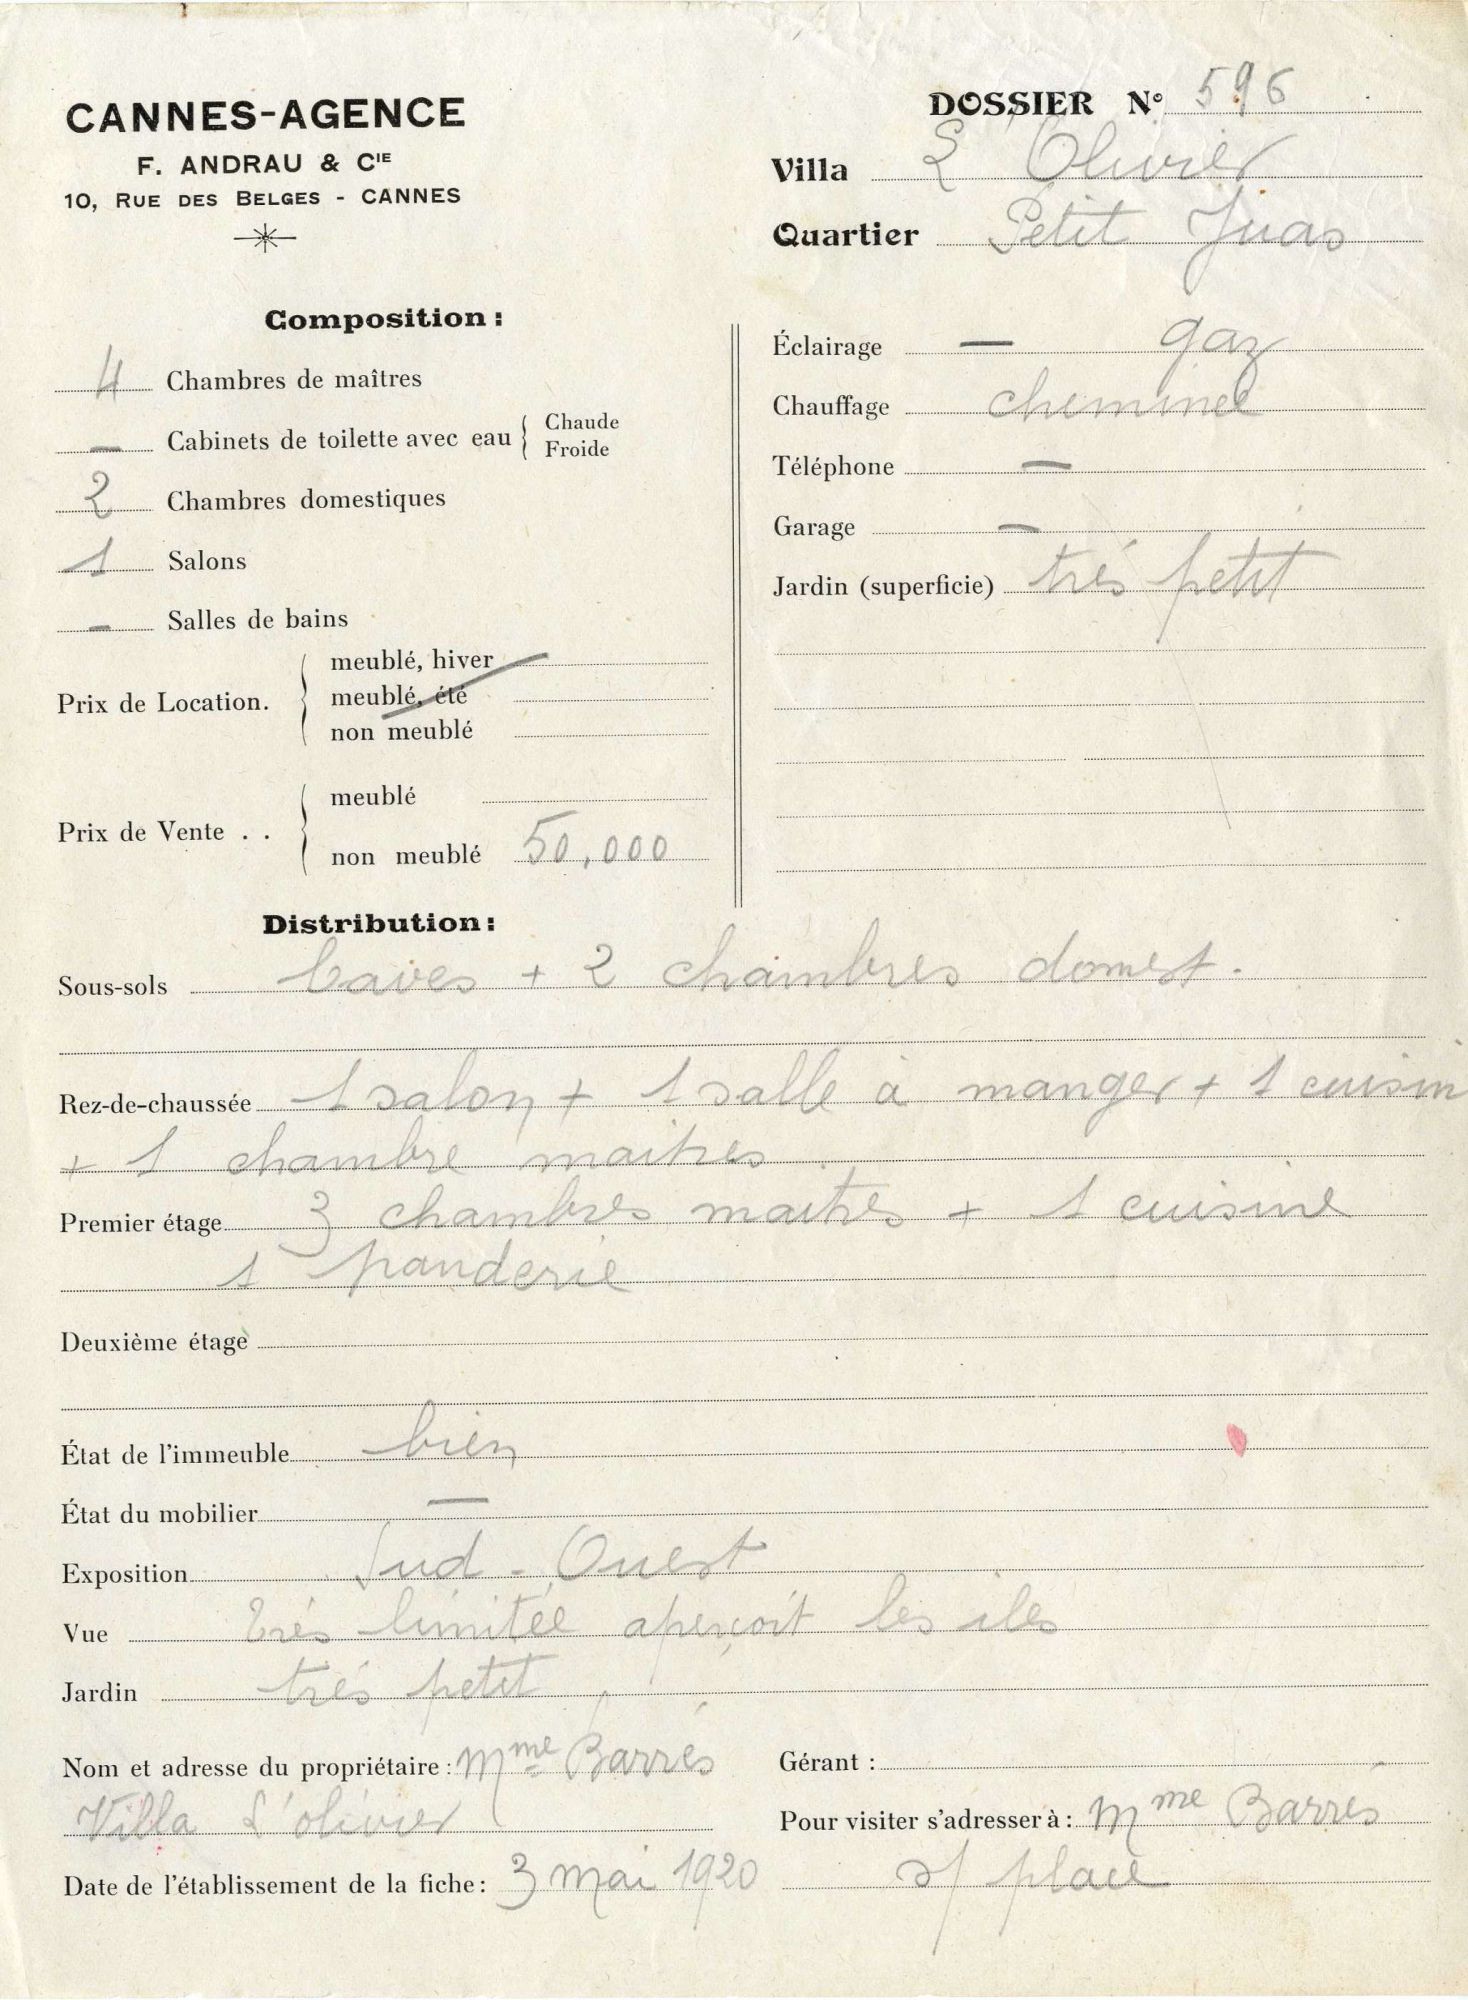 CANNES-AGENCE
F. ANDRAU & CIE
10, RUE DES BELGES - CANNES
DOSSIER N° 596
Villa L'Olivier
Quartier Petit Juas
Composition :
4 Chambres de maîtres
— Cabinets de toilette avec eau { Chaude
Froide
2 Chambres domestiques
1 Salons
— Salles de bains
Prix de Location.
meublé, hiver
meublé, été
non meublé
Prix de Vente . .
meublé
non meublé 50,000
Éclairage — gaz
Chauffage cheminée
Téléphone —
Garage —
Jardin (superficie) très petit
Distribution :
Sous-sols Caves + 2 chambres domest.
Rez-de-chaussée 1 salon + 1 salle à manger + 1 cuisin
+ 1 chambre maitres
Premier étage 3 chambres maitres + 1 cuisine
1 panderie
Deuxième étage
État de l'immeuble bien
État du mobilier —
Exposition Sud - Ouest
Vue très limitée aperçoit les iles
Jardin très petit
Nom et adresse du propriétaire : Mme Barrés
Villa L'olivier
Date de l'établissement de la fiche : 3 mai 1920
Gérant :
Pour visiter s'adresser à : Mme Barrés
s/ place